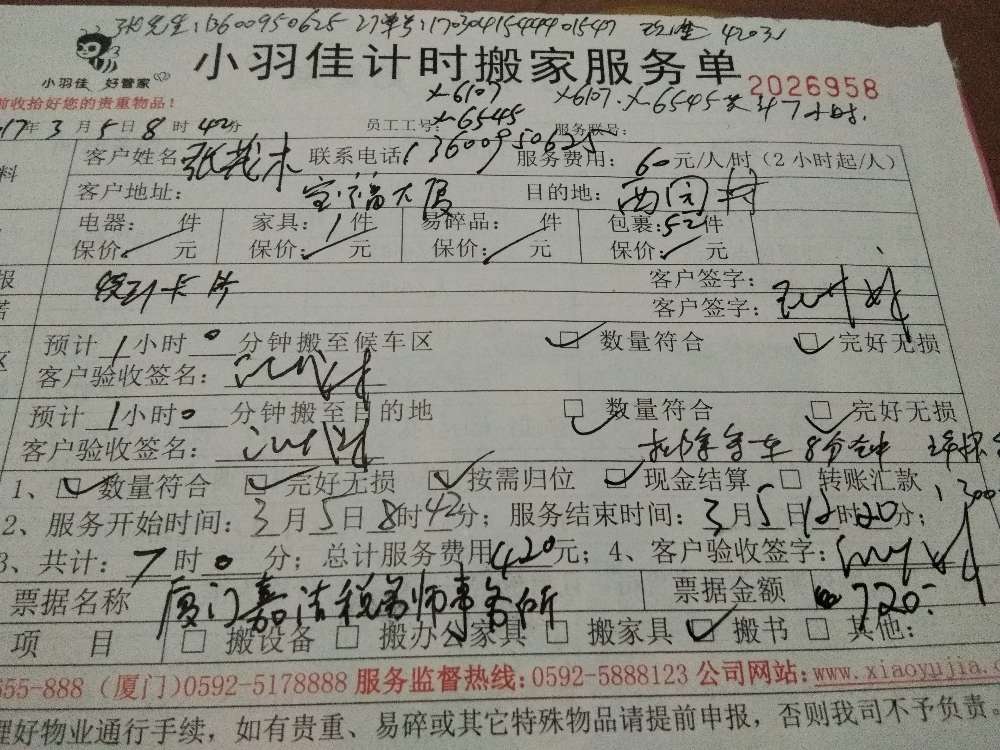 张先生:13600950625 订单号:17030415444401547 42031
小羽佳 好管家
小羽佳计时搬家服务单
2026958
前收拾好您的贵重物品!
x-6107 x-6107.x-6545共计7小时.
x-6545
017年3月5日8时42分 员工工号: 服务联号:
料 客户姓名 张 木 联系电话:13600950625 服务费用:60元/人/时(2小时起/人)
客户地址: 宝福大厦 目的地: 西园村
电器: 件 家具:1件 易碎品: 件 包裹:52件
保价: 元 保价: 元 保价: 元 保价: 元
报 卡片 客户签字:
客户签字:
区 预计1小时0分钟搬至候车区 数量符合 完好无损
客户验收签名:
预计1小时0分钟搬至目的地 数量符合 完好无损
客户验收签名: 扣除等车8分钟
1、数量符合 完好无损 按需归位 现金结算 转账汇款
300
2、服务开始时间:3月5日8时42分;服务结束时间:3月5日12时20分;
3、共计:7时0分;总计服务费用420元;4、客户验收签字:
票据名称 厦门嘉洁税务师事务所 票据金额 720.
项 目 搬设备 搬办公家具 搬家具 搬书 其他:
555-888(厦门)0592-5178888 服务监督热线:0592-5888123 公司网站:www.xiaoyujia.c
理好物业通行手续,如有贵重、易碎或其它特殊物品请提前申报,否则我司不予负责。